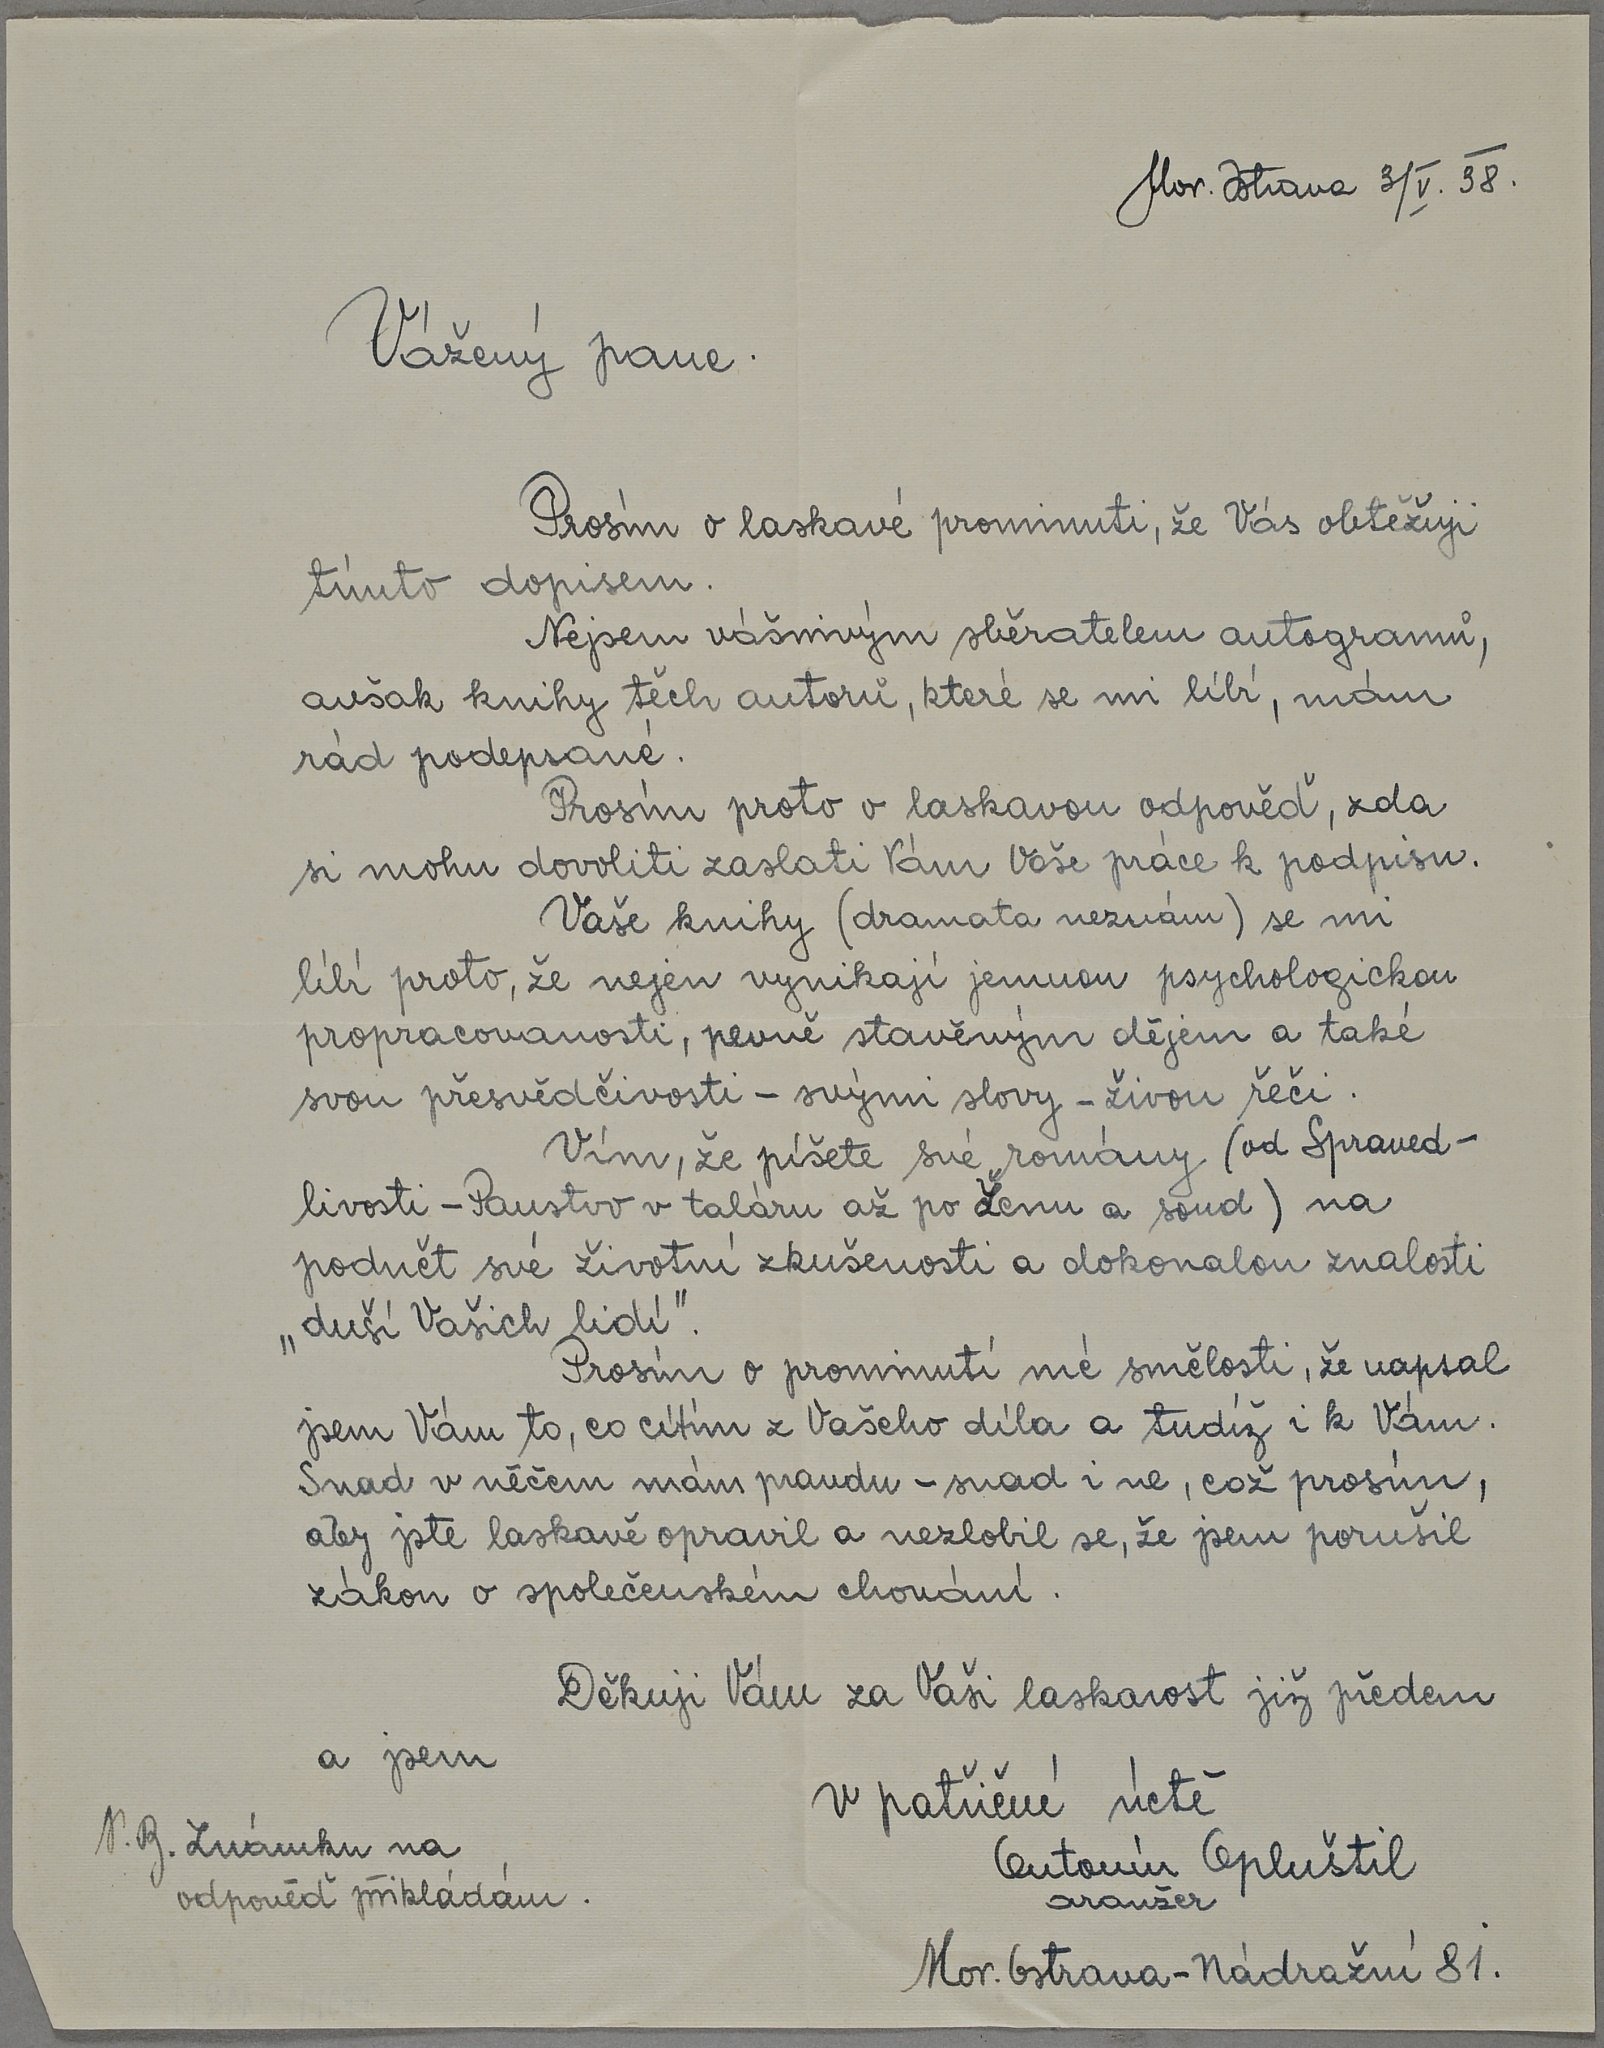 Mor. Ostrava 3/V. 38.
Vážený pane.
Prosím o laskavé prominuti, že Vás obtěžuji
tímto dopisem.
Nejsem vášnivým sběratelem autogramů,
avšak knihy těch autorů, které se mi líbí, mám
rád podepsané.
Prosím proto o laskavou odpověď, zda
si mohu dovoliti zaslati Vám Vaše práce k podpisu.
Vaše knihy (dramata neznám) se mi
líbí proto, že nejen vynikají jemnou psychologickou
propracovanosti, pevně stavěným dějem a také
svou přesvědčivosti – svými slovy – živou řeči.
Vím, že píšete své romány (od Spraved-
livosti – Panstvo v taláru až po Ženu a soud) na
podnět své životní zkušenosti a dokonalou znalosti
„duší Vašich lidí".
Prosím o prominutí mé smělosti, že napsal
jsem Vám to, co cítím z Vašeho díla a tudíž i k Vám.
Snad v něčem mám pravdu – snad i ne, což prosím,
aby jste laskavě opravil a nezlobil se, že jsem porušil
zákon o společenském chování.
Děkuji Vám za Vaši laskavost již předem
a jsem
v patřičné úctě
Antonín Opluštil
aranžer
Mor. Ostrava – Nádražní 81.
N. B. Známku na
odpověď přikládám.